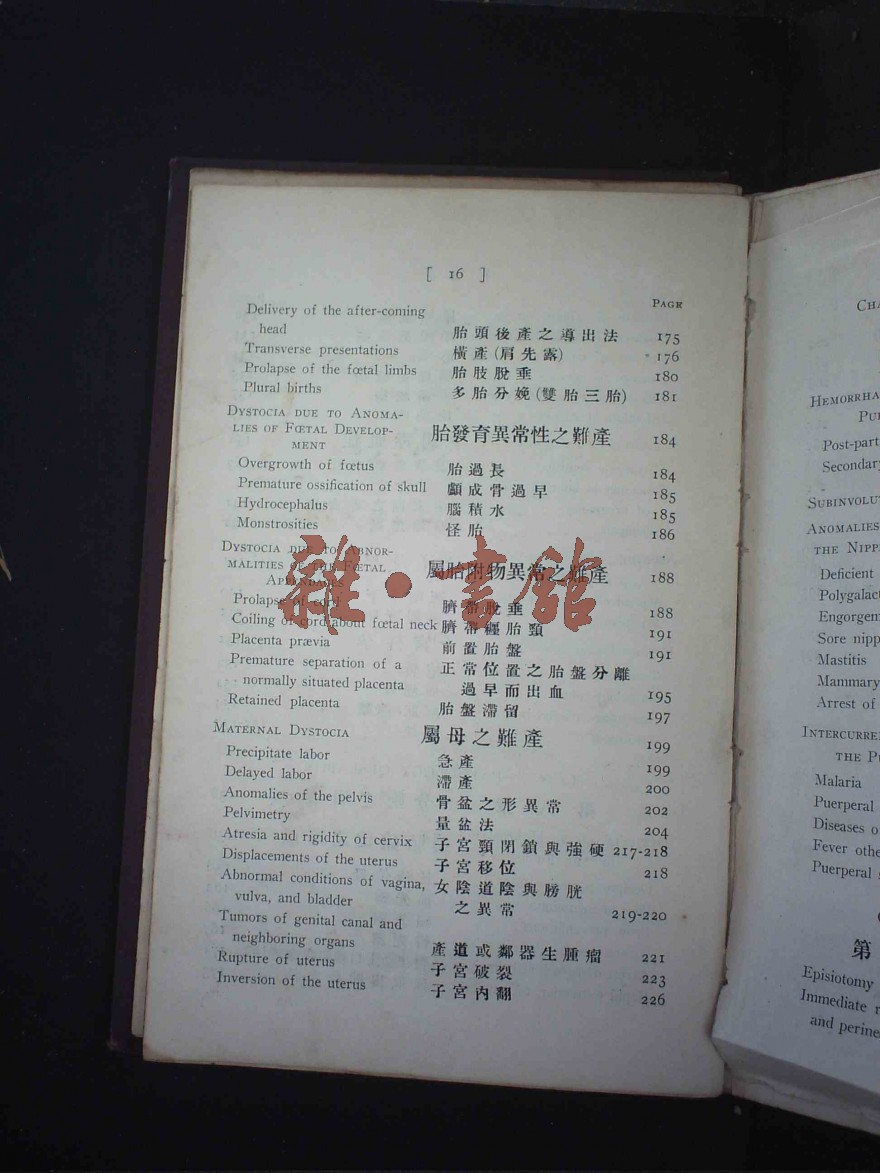 [ 16 ]
PAGE
Delivery of the after-coming
head 胎頭後產之導出法 175
Transverse presentations 橫產(肩先露) 176
Prolapse of the fœtal limbs 胎肢脫垂 180
Plural births 多胎分娩(雙胎三胎) 181
DYSTOCIA DUE TO ANOMA-
LIES OF FŒTAL DEVELOP- 胎發育異常性之難產 184
MENT
Overgrowth of fœtus 胎過長 184
Premature ossification of skull 顱成骨過早 185
Hydrocephalus 腦積水 185
Monstrosities 怪胎 186
DYSTOCIA DUE TO ABNOR-
MALITIES OF THE FŒTAL 屬胎附物異常之難產 188
APPENDAGES
Prolapse of cord 臍帶脫垂 188
Coiling of cord about fœtal neck 臍帶纏胎頸 191
Placenta prævia 前置胎盤 191
Premature separation of a 正常位置之胎盤分離
normally situated placenta 過早而出血 195
Retained placenta 胎盤滯留 197
MATERNAL DYSTOCIA 屬母之難產 199
Precipitate labor 急產 199
Delayed labor 滯產 200
Anomalies of the pelvis 骨盆之形異常 202
Pelvimetry 量盆法 204
Atresia and rigidity of cervix 子宮頸閉鎖與強硬 217-218
Displacements of the uterus 子宮移位 218
Abnormal conditions of vagina, 女陰道陰與膀胱
vulva, and bladder 之異常 219-220
Tumors of genital canal and
neighboring organs 產道或鄰器生腫瘤 221
Rupture of uterus 子宮破裂 223
Inversion of the uterus 子宮內翻 226
雜·書館
CHA
HEMORRHA
PU
Post-part
Secondary
SUBINVOLU
ANOMALIES
THE NIPP
Deficient
Polygalact
Engorgem
Sore nipp
Mastitis
Mammary
Arrest of
INTERCURRE
THE PU
Malaria
Puerperal
Diseases o
Fever othe
Puerperal
第
Episiotomy
Immediate r
and perine